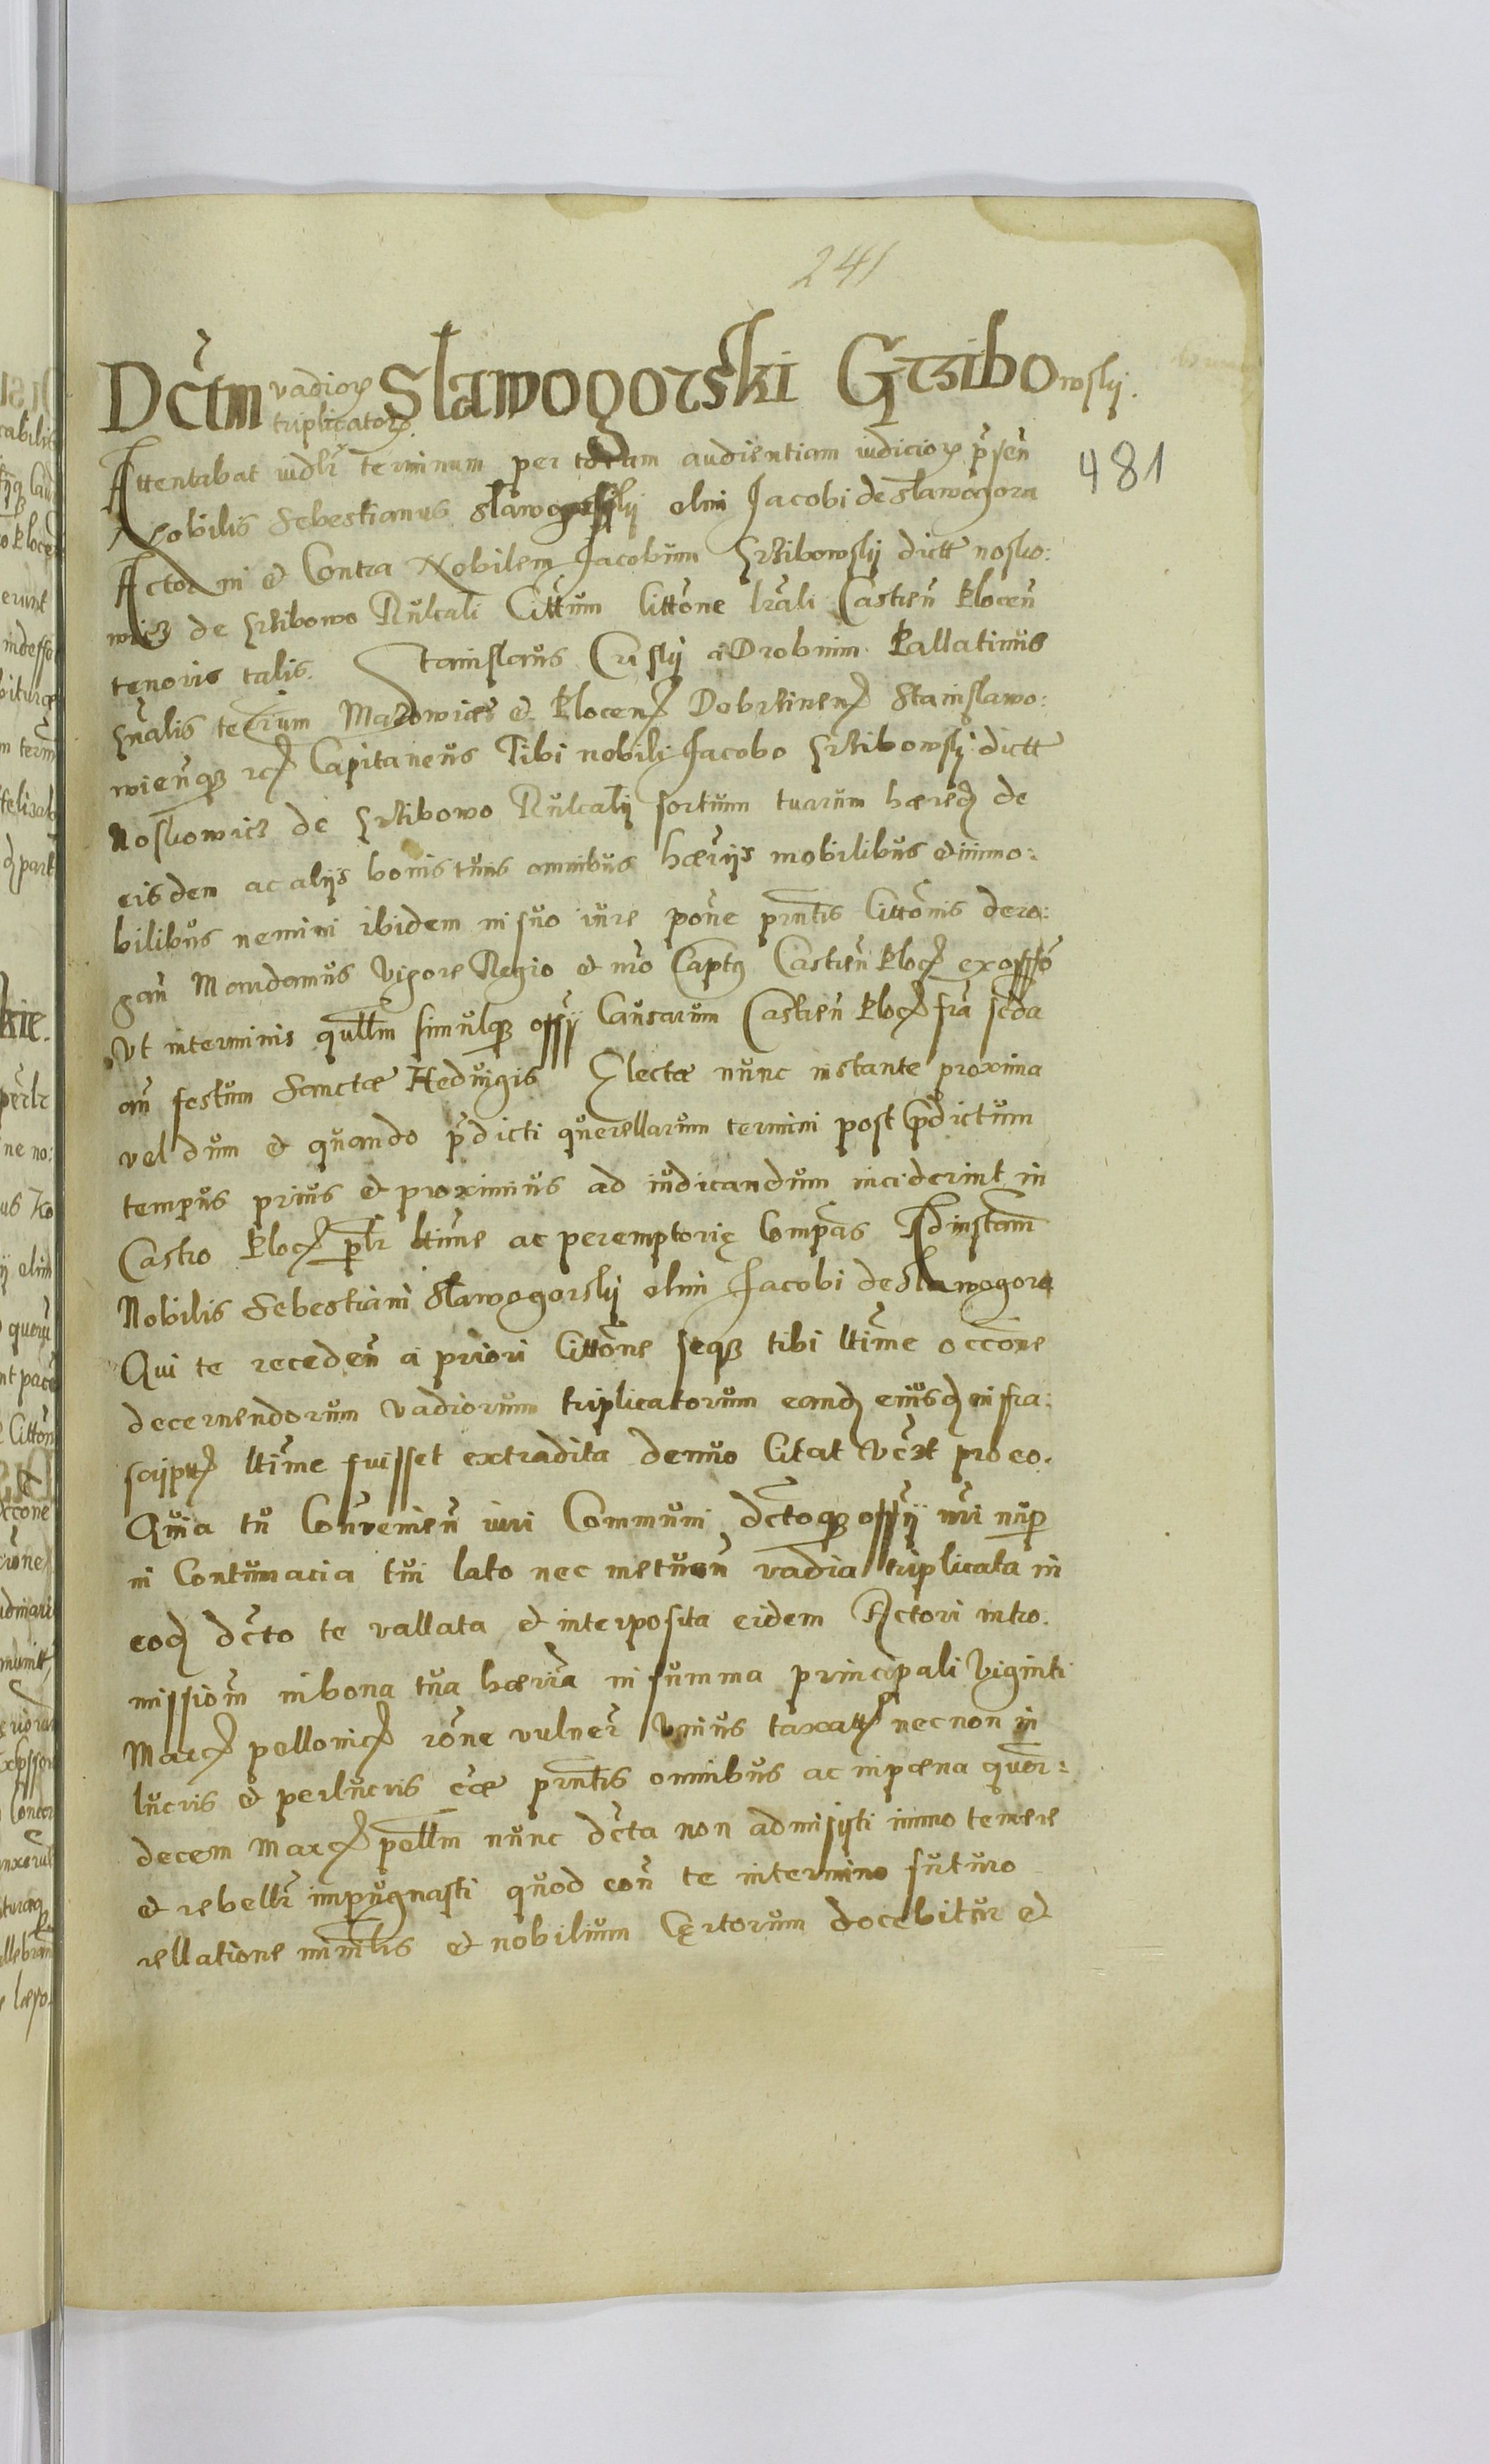 241
Dctm vadior Slawogorski Grzibowskij.
triplicator.
481
Attentabat iudlr terminum per totam audientiam iudicior prsen
Nobilis Sebestianus Slawogorskij olim Jacobi de Slawogora
Actor in et Contra Nobilem Jacobum Grzibowskij dictt nosko:
wicz de Grzibowo Rulcali Cittum Cittone lrali Castren Plocen
tenoris talis. Stanislaus Criskij a Drobnin Pallatinus
gnalis terrum Mazowiae et Plocen Dobrzinen Stanislawo:
wienqz rc Capitaneus Tibi nobili Jacobo Grzibowskij dictt
Noskowicz de Grzibowo Rulcalij sortium tuarum haered de
eisdem ac alijs bonis tuis omnibus haerijs mobilibus et immo:
bilibus nemini ibidem in suo iure pone prntis Cittonis dero:
gan Mandamus Vigore Regio et nro Captus Castren Ploc ex offo
Ut in terminis qullm simulqz offij Causarum Castren Ploc fra scda
an festum Sanctae Heduigis Electae nunc instante proxima
vel dum et quando prdicti querellarum termini post prdictum
tempus prius et proximius ad iudicandum inciderint in
Castro Ploc plr ltime ac peremptorie Compas Ad instam
Nobilis Sebestiani Slawogorskij olim Jacobi de Slawogora
Qui te receden a priori Cittone seqz tibi ltime occone
decernendorum vadiorum triplicatorum eand eiusd infra:
scrptt ltime fuisset extradita denuo Citat vczt pro eo.
Quia tu Convenien iuri Communi dctoqz offij nri nup
in Contumacia tui lato nec metuen vadia triplicata in
eod dcto te vallata et interposita eidem Actori intro.
missiom in bona tua haeria in summa principali Viginti
Marc pollonic rone vulner unius taxatt nec non in
lucris et perlucris cae prntis omnibus ac in paena quor:
decem Marc pollm nunc dcta non admisisti immo temere
et rebellr impugnasti quod con te in termino futuro
rellatione mintris et nobilium Certorum docebitur et